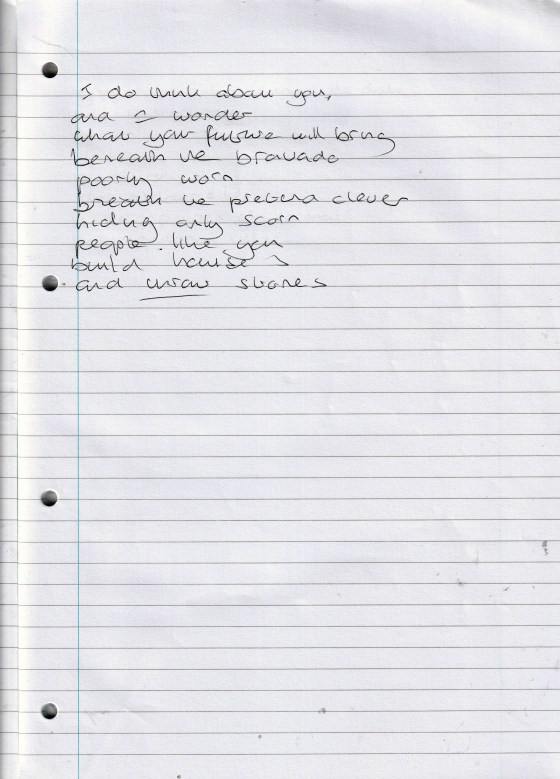 I do think about you,
and I wonder
what your future will bring
beneath the bravado
poorly worn
breath the pretend clever
hiding only scorn
people like you
build houses
and throw stones